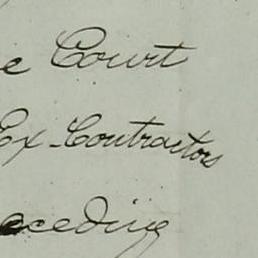 e Court
Ex-Contractors
eceding